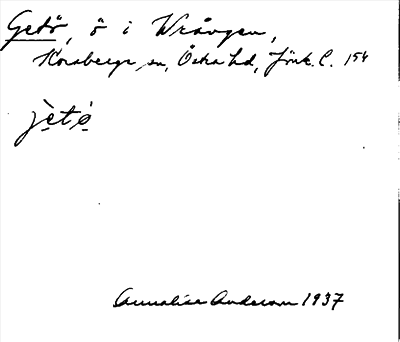 Getö, ö i Wrången,
Korsberga sn, Östra hd, Jönk. l. 154
jètö̀
Annalisa Anderson 1937